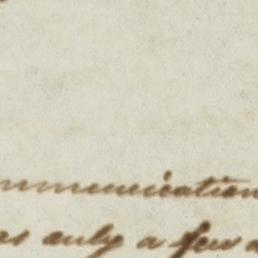 mmunication
es only a few d